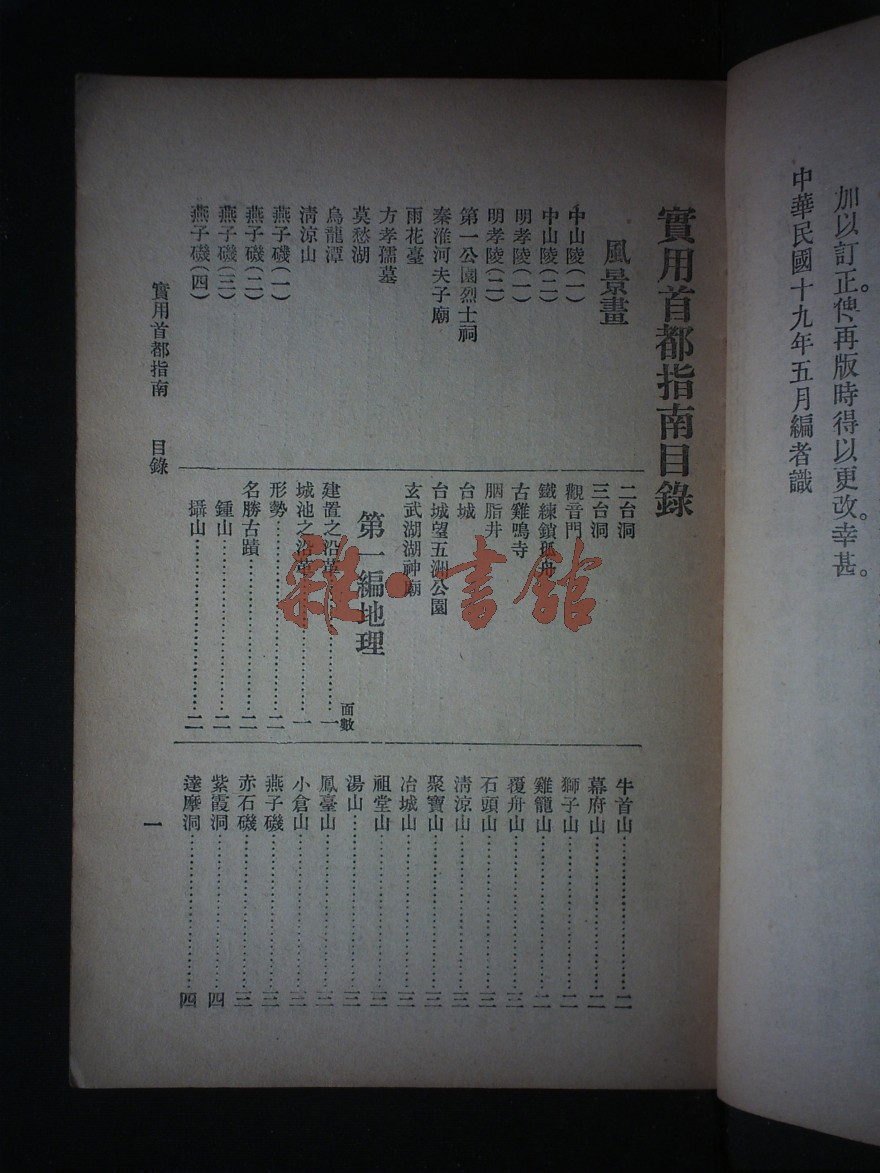 加以訂正。俾再版時得以更改。幸甚。
中華民國十九年五月編者識
實用首都指南目錄
風景畫
中山陵(一)
中山陵(二)
明孝陵(一)
明孝陵(二)
第一公園烈士祠
秦淮河夫子廟
雨花臺
方孝孺墓
莫愁湖
烏龍潭
清涼山
燕子磯(一)
燕子磯(二)
燕子磯(三)
燕子磯(四)
二台洞
三台洞
觀音門
鐵練鎖孤舟
古雞鳴寺
胭脂井
台城
台城望五洲公園
玄武湖湖神廟
第一編地理
面數
建置之沿革……一
城池之沿革……一
形勢……二
名勝古蹟……二
鍾山……二
攝山……二
牛首山……二
幕府山……二
獅子山……二
雞籠山……二
覆舟山……三
石頭山……三
清涼山……三
聚寶山……三
冶城山……三
祖堂山……三
湯山……三
鳳臺山……三
小倉山……三
燕子磯……三
赤石磯……三
紫霞洞……四
達摩洞……四
實用首都指南 目錄
一
雜·書館